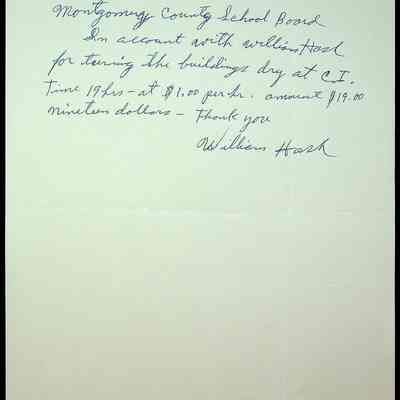 Montgomery County School Board
In account with William Hash
for turning the buildings dry at C.I.
Time 19 hrs - at $1.00 per hr. amount $19.00
nineteen dollars - Thank you
William Hash